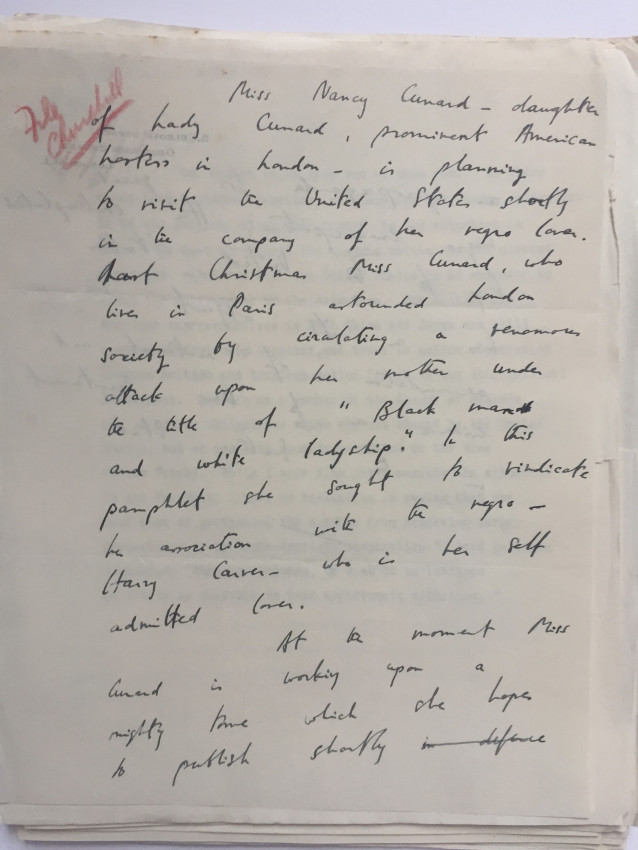 File
Churchill
Miss Nancy Cunard – daughter
of Lady Cunard, prominent American
hostess in London – is planning
to visit the United States shortly
in the company of her negro lover.
Last Christmas Miss Cunard, who
lives in Paris astounded London
society by circulating a venomous
attack upon her mother under
the title of "Black man
and white ladyship." In this
pamphlet she sought to vindicate
her association with the negro –
Harry Carver – who is her self
admitted lover.
At the moment Miss
Cunard is working upon a
mighty tome which she hopes
to publish shortly in defence